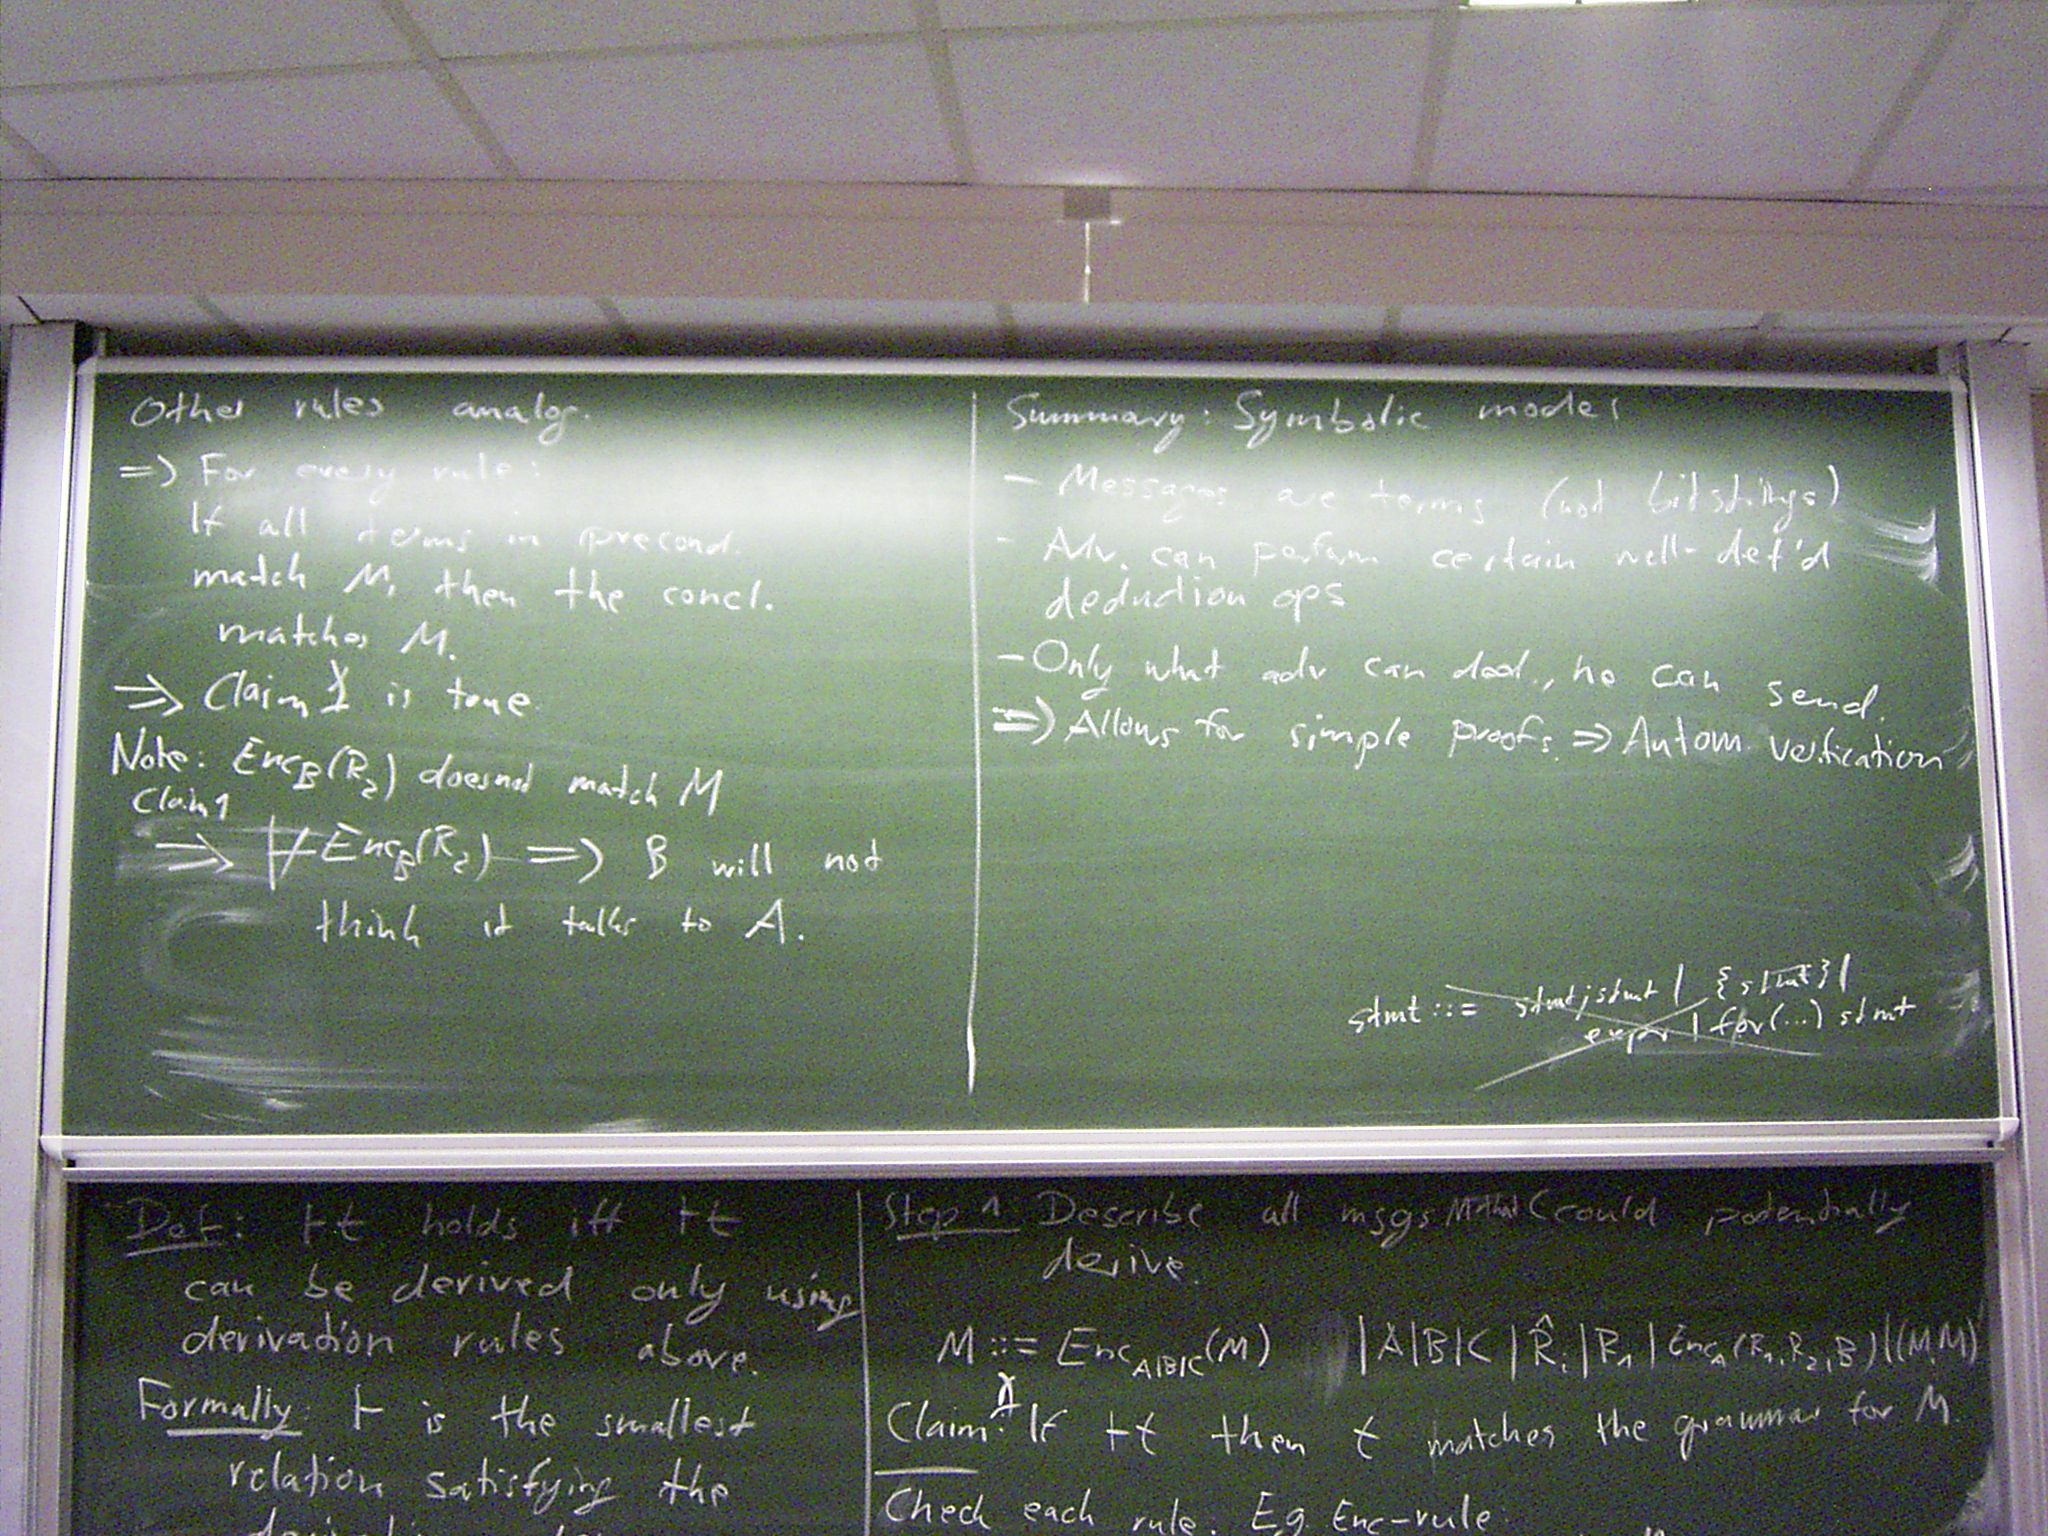 Other rules analog.
=> For every rule:
If all terms in precond.
match M, then the concl.
matches M.
=> Claim 1 is true
Note: Enc_B(R_2) doesnot match M
Claim 1
=> ⊬ Enc_B(R_2) => B will not
think it talks to A.
Summary: Symbolic model
- Messages are terms (not bitstrings)
- Adv. can perform certain well-def'd
deduction ops
- Only what adv can ded., he can send.
=> Allows for simple proofs. => Autom. verification
stmt ::= stmt;stmt | {stmt} |
expr | for(...) stmt
Def: ⊢t holds iff ⊢t
can be derived only using
derivation rules above.
Formally: ⊢ is the smallest
relation satisfying the
Step 1 Describe all msgs M that C could potentially
derive.
M ::= Enc_{A|B|C}(M) | A | B | C | R̂_i | R_1 | Enc_A(R_1,R_2,B) | (M,M)
Claim 1: If ⊢t then t matches the grammar for M.
Check each rule. E.g. Enc-rule: